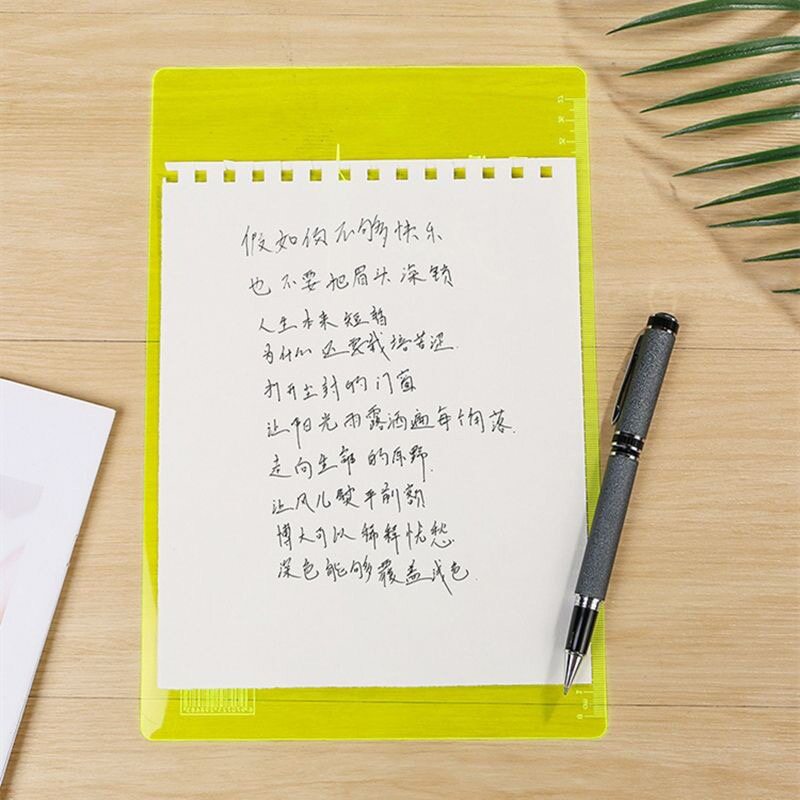 假如你不够快乐
也不要把眉头深锁
人生本来短暂
为什么还要栽培苦涩
打开尘封的门窗
让阳光雨露洒遍每个角落
走向生命的原野
让风儿熨平前额
博大可以稀释忧愁
深色能够覆盖浅色